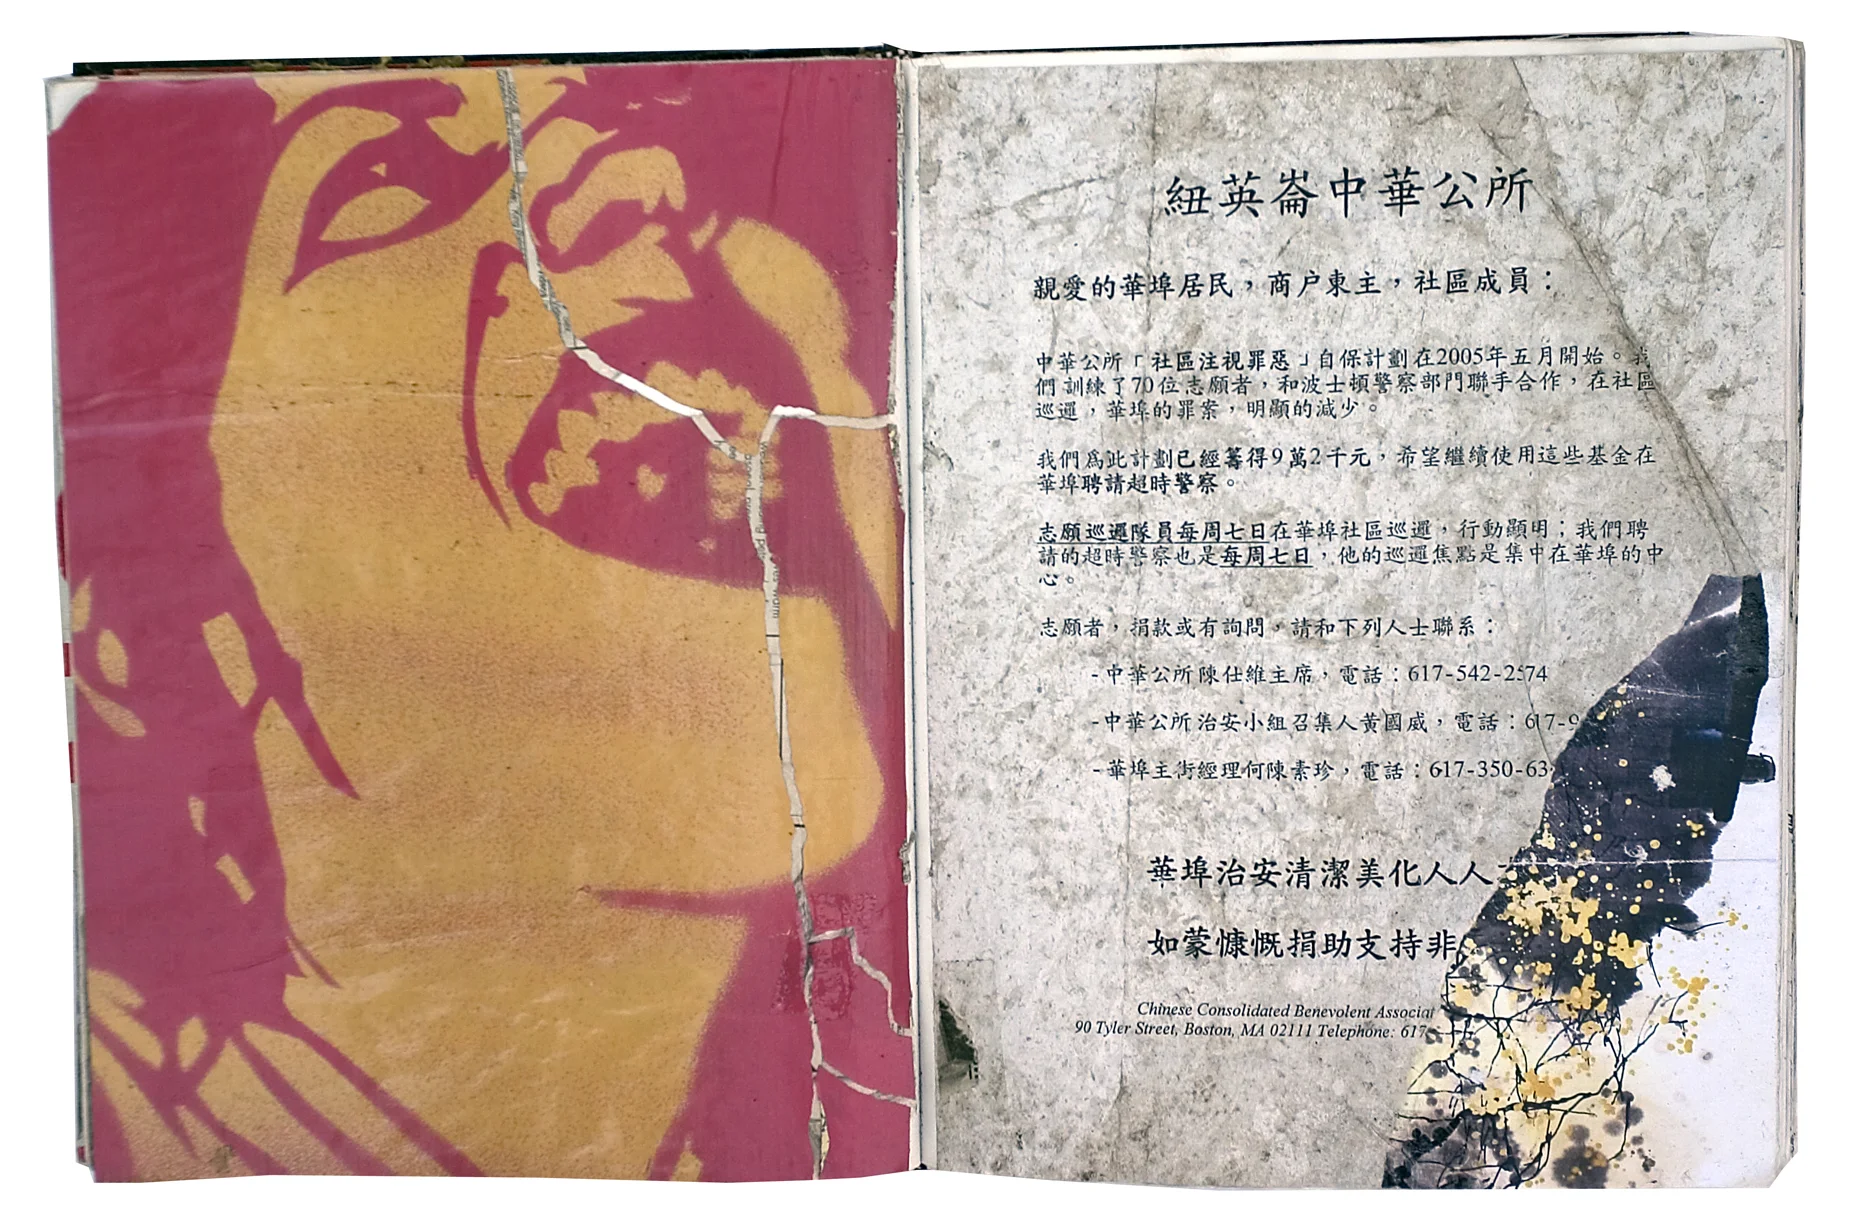 紐英崙中華公所
親愛的華埠居民，商户東主，社區成員：
中華公所「社區注視罪惡」自保計劃在2005年五月開始。我
們訓練了70位志願者，和波士頓警察部門聯手合作，在社區
巡邏，華埠的罪案，明顯的減少。
我們爲此計劃已經籌得9萬2千元，希望繼續使用這些基金在
華埠聘請超時警察。
志願巡邏隊員每周七日在華埠社區巡邏，行動顯明；我們聘
請的超時警察也是每周七日，他的巡邏焦點是集中在華埠的中
心。
志願者，捐款或有詢問，請和下列人士聯系：
-中華公所陳仕維主席，電話：617-542-2574
-中華公所治安小組召集人黃國威，電話：617-9
-華埠主街經理何陳素珍，電話：617-350-63
華埠治安清潔美化人人
如蒙慷慨捐助支持非
Chinese Consolidated Benevolent Associat
90 Tyler Street, Boston, MA 02111 Telephone: 617-